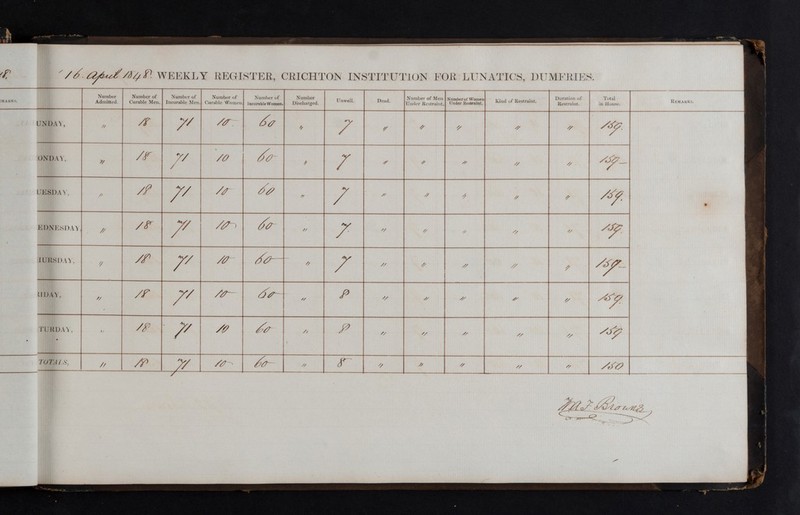 8. 16 April 1848. WEEKLY REGISTER, CRICHTON INSTITUTION FOR LUNATICS, DUMFRIES.
Number Admitted. Number of Curable Men. Number of Incurable Men. Number of Curable Women. Number of Incurable Women. Number Discharged. Unwell. Dead. Number of Men Under Restraint. Number of Women Under Restraint. Kind of Restraint. Duration of Restraint. Total in House. REMARKS.
UNDAY, " 18 71 10 60 " 7 " " " " " 159.
ONDAY, " 18 71 10 60 " 7 " " " " " 159
UESDAY, " 18 71 10 60 " 7 " " " " " 159.
EDNESDAY, " 18 71 10 60 " 7 " " " " " 159
HURSDAY, " 18 71 10 60 " 7 " " " " " 159
RIDAY, " 18 71 10 60 " 8 " " " " " 159
TURDAY, " 18 71 10 60 " 8 " " " " " 159
TOTALS, " 18 71 10 60 " 8 " " " " " 150
W.A.F. Browne